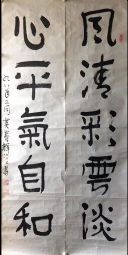 風清彩雲淡
心平氣自和